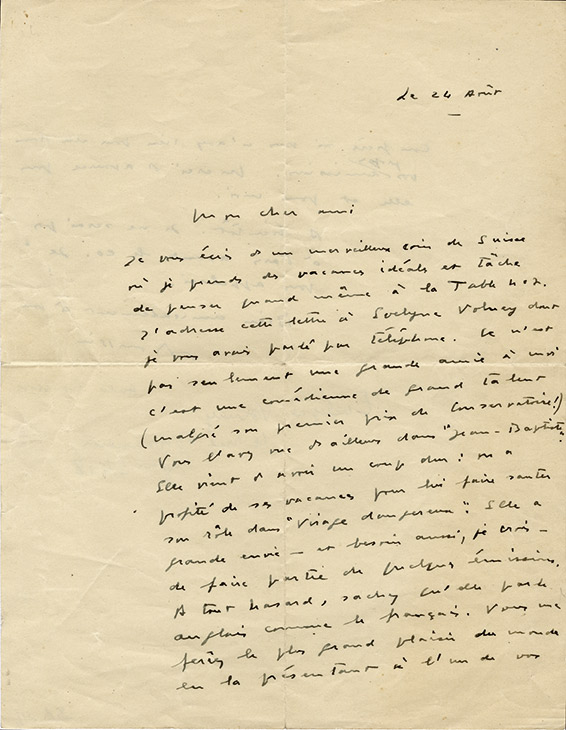 Le 24 Août
Mon cher ami
Je vous écris d'un merveilleux coin de Suisse
où je prends des vacances idéales et tâche
de penser quand même à la Table
J'adresse cette lettre à Evelyne Volney dont
je vous avais parlé par téléphone. Ce n'est
pas seulement une grande amie à moi
c'est une comédienne de grand talent
(malgré son premier prix de Conservatoire!)
Vous l'avez vue d'ailleurs dans "Jean-Baptiste
Elle vient d'avoir un coup dur : on a
profité de ses vacances pour lui faire sauter
son rôle dans "Virage dangereux". Elle a
grande envie — et besoin aussi, je crois —
de faire partie de quelques émissions.
A tout hasard, sachez qu'elle parle
anglais comme le français. Vous me
ferez le plus grand plaisir du monde
en la présentant à l'un de vos